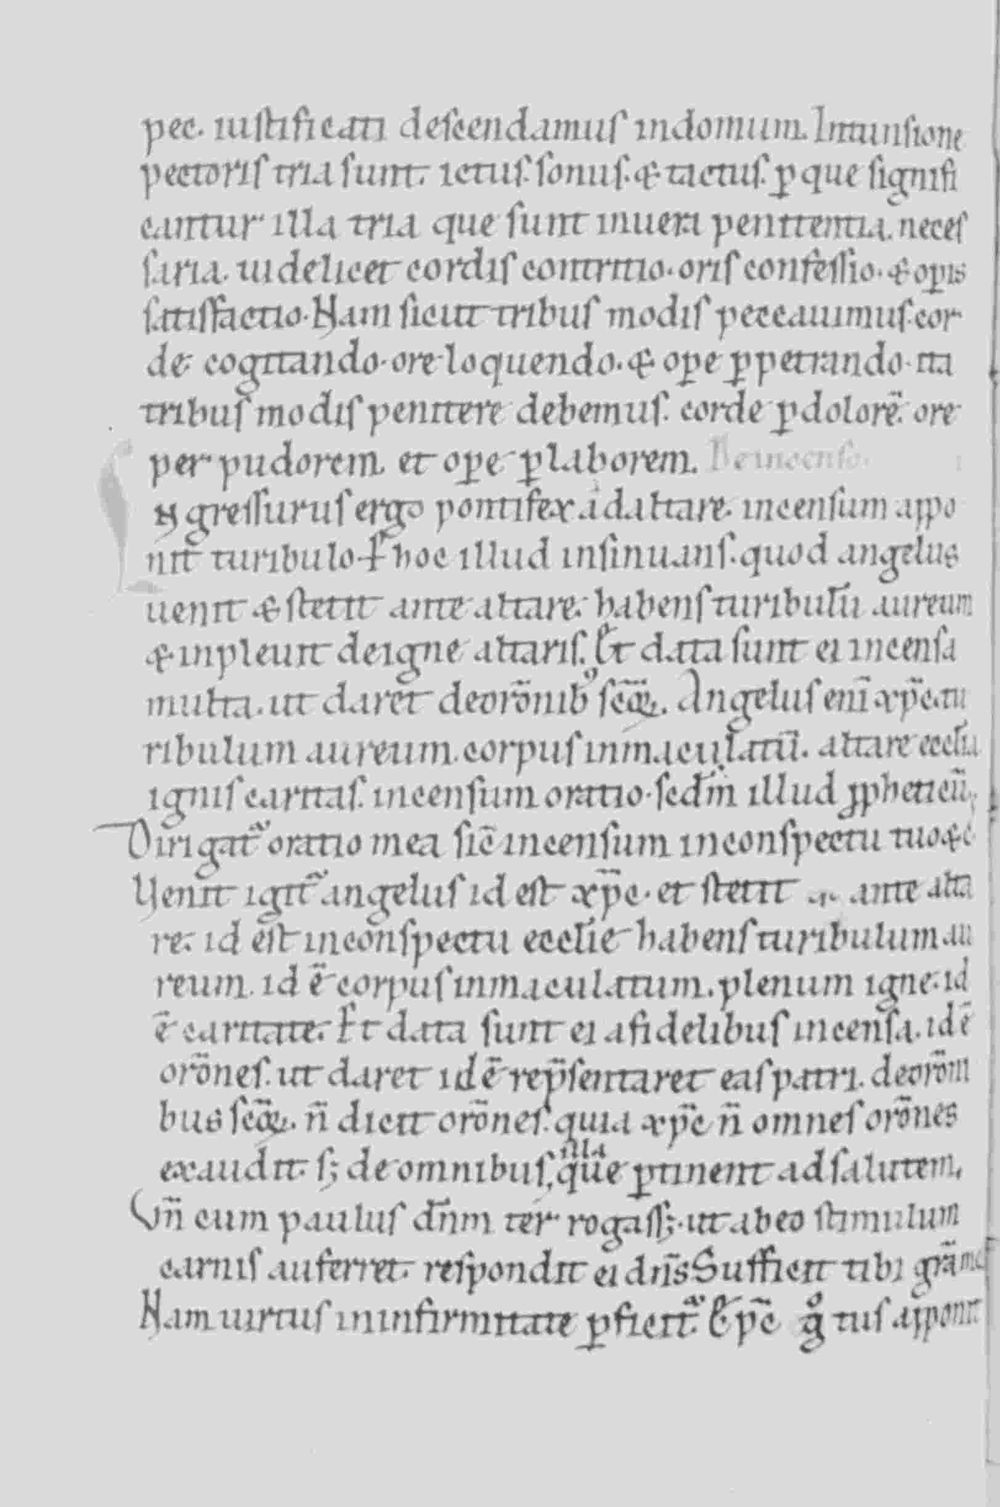 pec. iustificati descendamus indomum. Intunsione
pectoris tria sunt. ictus. sonus. & tactus. ꝑ que signifi
cantur illa tria que sunt inuera penitentia. neces
saria. uidelicet cordis contritio. oris confessio. & oꝑis
satisfactio. Nam sicut tribus modis peccauimus. cor
de cogitando. ore loquendo. & oꝑe ꝑpetrando. ita
tribus modis penitere debemus. corde ꝑdolorē. ore
per pudorem. et oꝑe ꝑlaborem. De incenso.
Ingressurus ergo pontifex adaltare. incensum appo
nit turibulo. hoc illud insinuans. quod angelus
uenit & stetit ante altare. habens turibulū aureum
& inpleuit deigne altaris. Et data sunt ei incensa
multa. ut daret deorōnibꝰ scōꝝ. Angelus enī xp̄c. tu
ribulum aureum. corpus inmaculatū. altare ecclīa
ignis caritas. incensum oratio. scdm̄ illud ꝓpheticū.
Dirigat᷑ oratio mea sic̄ incensum inconspectu tuo &c̄
Uenit igit᷑ angelus id est xp̄c. et stetit ante alta
re. id est inconspectu ecclīe habens turibulum au
reum. id ē corpus inmaculatum. plenum igne. id
ē caritate. Et data sunt ei afidelibus incensa. idē
orōnes. ut daret idē rep̄sentaret eas patri. deorōni
bus scōꝝ. n̄ dicit orōnes. quia xp̄c n̄ omnes orōnes
exaudit. sꝫ de omnibus, illa que ꝑtinent adsalutem.
Vn̄ cum paulus dn̄m ter rogassꝫ. ut abeo stimulum
carnis auferret. respondit ei dn̄s Sufficit tibi grā mea
Nam uirtus ininfirmitate ꝑficit᷑. Ep̄c gͦ tus apponit